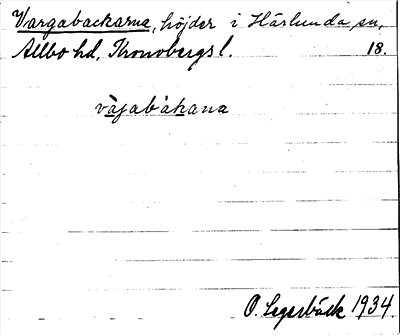 Vargabackarna, höjder i Härlunda sn,
Allbo hd, Kronobergs l. 18.
vàjabákana
O. Legerbäck 1934.